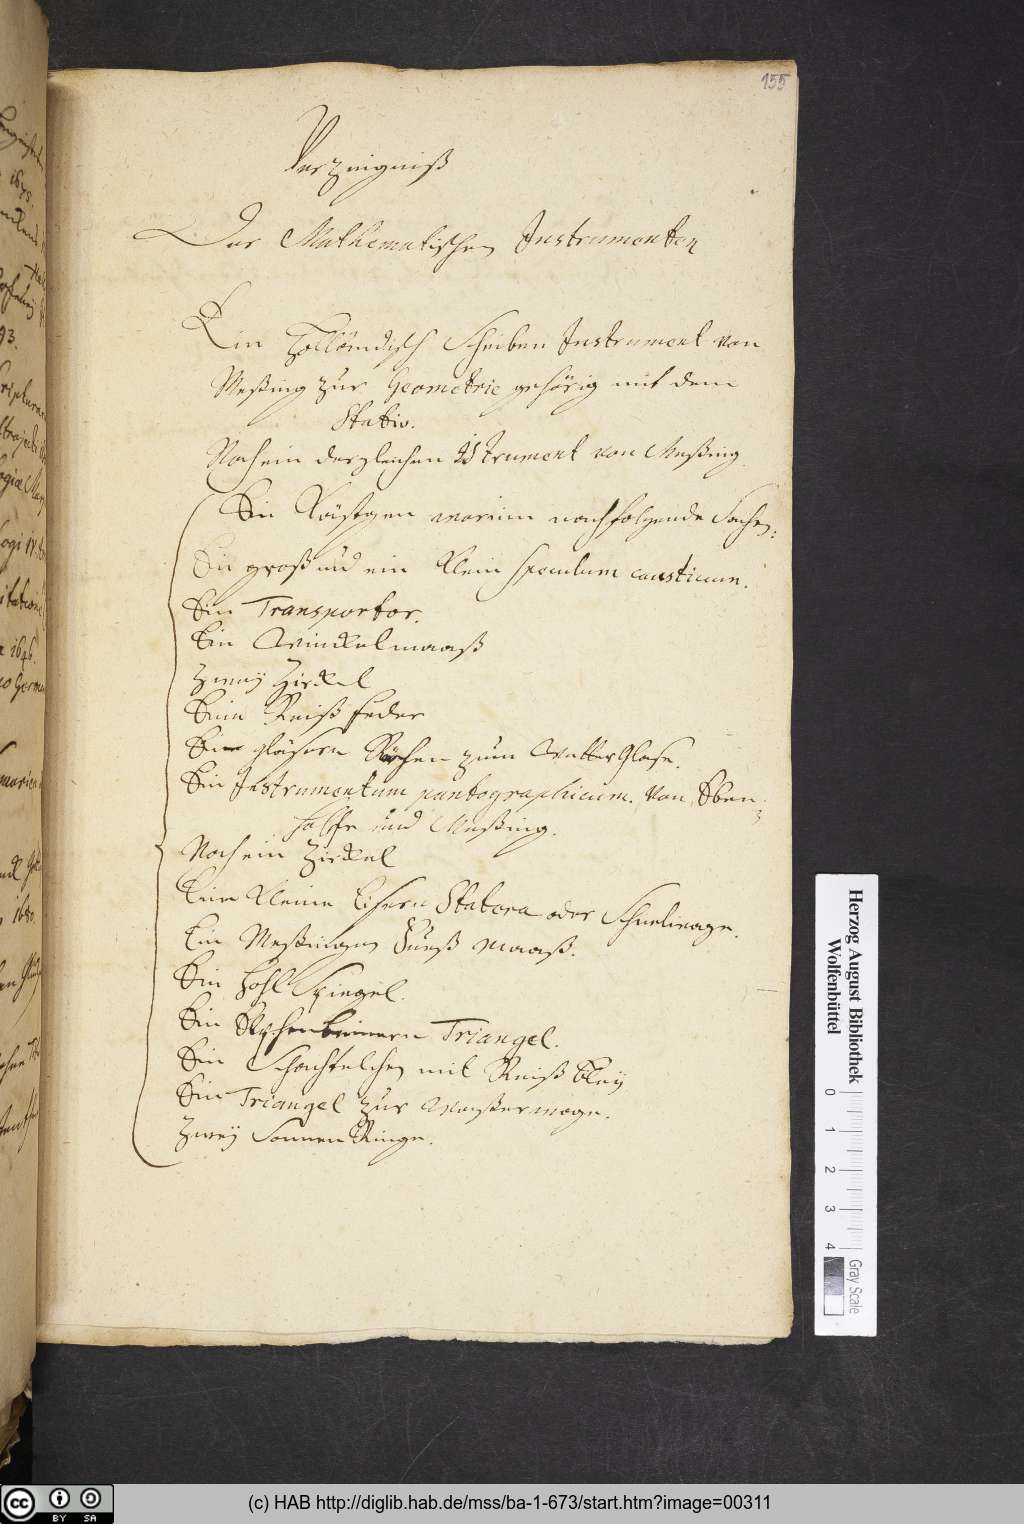 155
Verzeigniß
Der Mathematischen Instrumenten
Ein Holländisch Scheiben Instrument von
Meßing zur Geometrie gehörig mit dem
Stativ.
Noch ein dergleichen Istrument von Meßing
Ein Kästgen worinn nachfolgende Sachen:
Ein groß und ein klein speculum causticum.
Ein Transportor.
Ein Winckelmaaß
Zwey Zirckel
Eine Reiß feder
Ein gläsern Röhrchen zum Wetter Glase.
Ein Instrumentum pantographicum. von Eben
Holtze und Meßing.
Noch ein Zirckel
Eine kleine Eisern Statera oder Schnelwage.
Ein Meßingen Fueß maaß.
Ein Hohl Spiegel.
Ein Triangel.
Ein Schachtelchen mit Reiß bley
Ein Triangel zur Waßerwage.
Zwey Sonnen Ringe.
Herzog August Bibliothek
Wolfenbüttel
0 1 2 3 4
Gray Scale
(c) HAB http://diglib.hab.de/mss/ba-1-673/start.htm?image=00311
cc BY SA